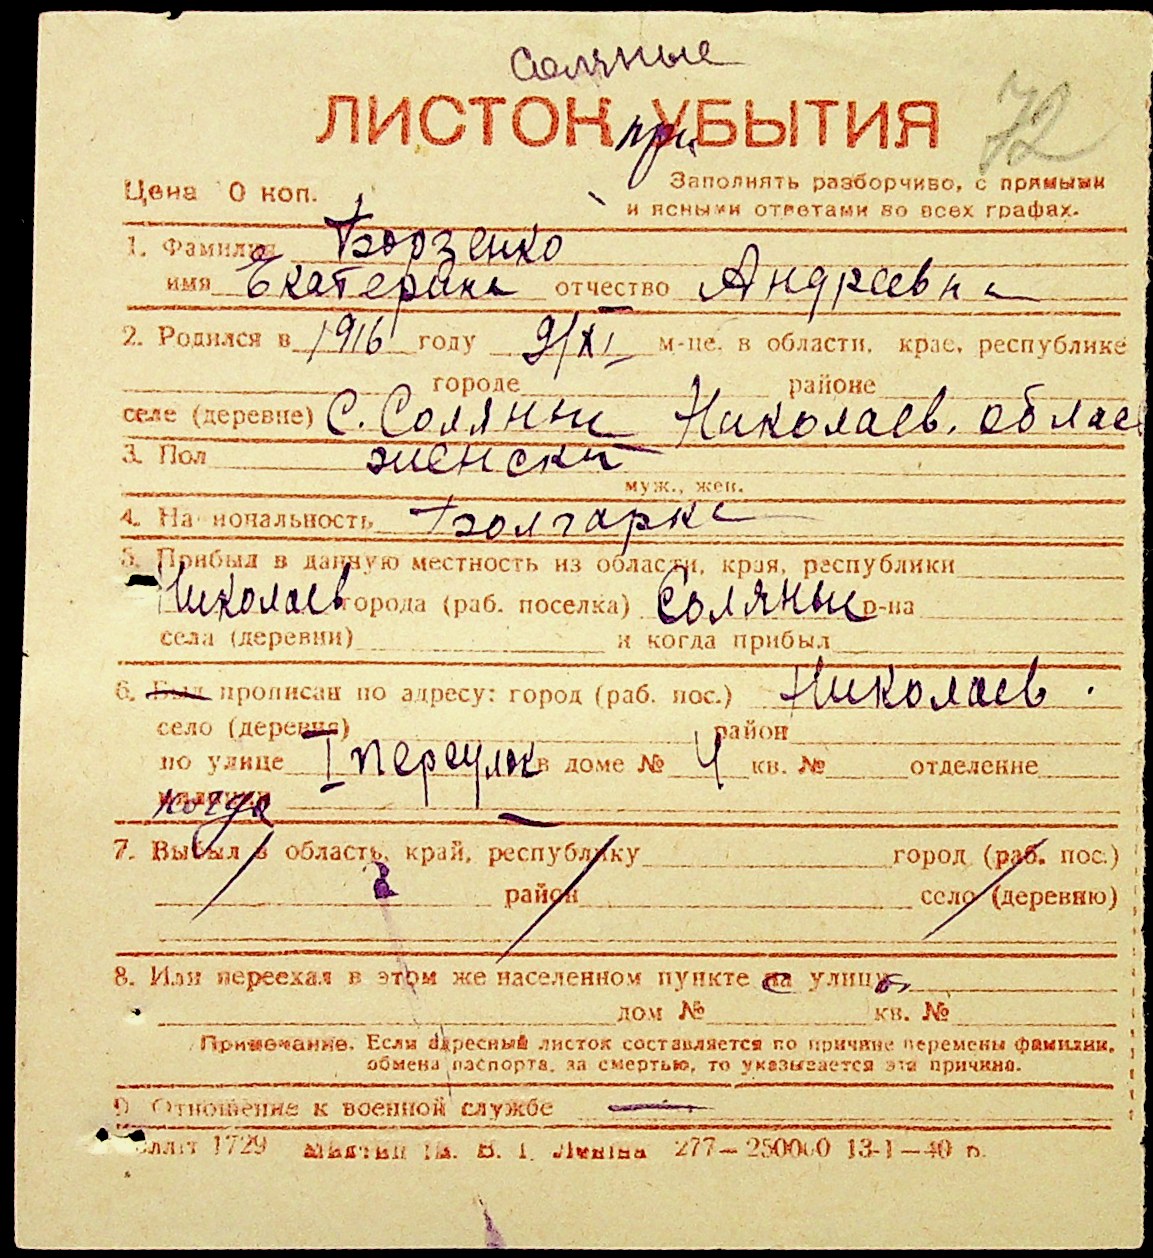 Соляные
ЛИСТОК УБЫТИЯ 72
при
Цена 0 коп. Заполнять разборчиво, с прямыми
и ясными ответами во всех графах.
1. Фамилия Борзенко
имя Екатерина отчество Андреевна
2. Родился в 1916 году 9/XI м-це, в области, крае, республике
городе районе
селе (деревне) С. Соляные Николаев. облас
3. Пол женский
муж., жен.
4. Национальность Болгарка
5. Прибыл в данную местность из области, края, республики
Николаев города (раб. поселка) Соляные р-на
села (деревни) и когда прибыл
6. Был прописан по адресу: город (раб. пос.) Николаев.
село (деревня) район
по улице I переулок в доме № 4 кв. № отделение
милиции когда
7. Выбыл в область, край, республику город (раб. пос.)
район село (деревню)
8. Или переехал в этом же населенном пункте на улицу
дом № кв. №
Примечание. Если адресный листок составляется по причине перемены фамилии,
обмена паспорта, за смертью, то указывается эта причина.
9. Отношение к военной службе —
1729 Ленина 277—250000 13-1—40 г.